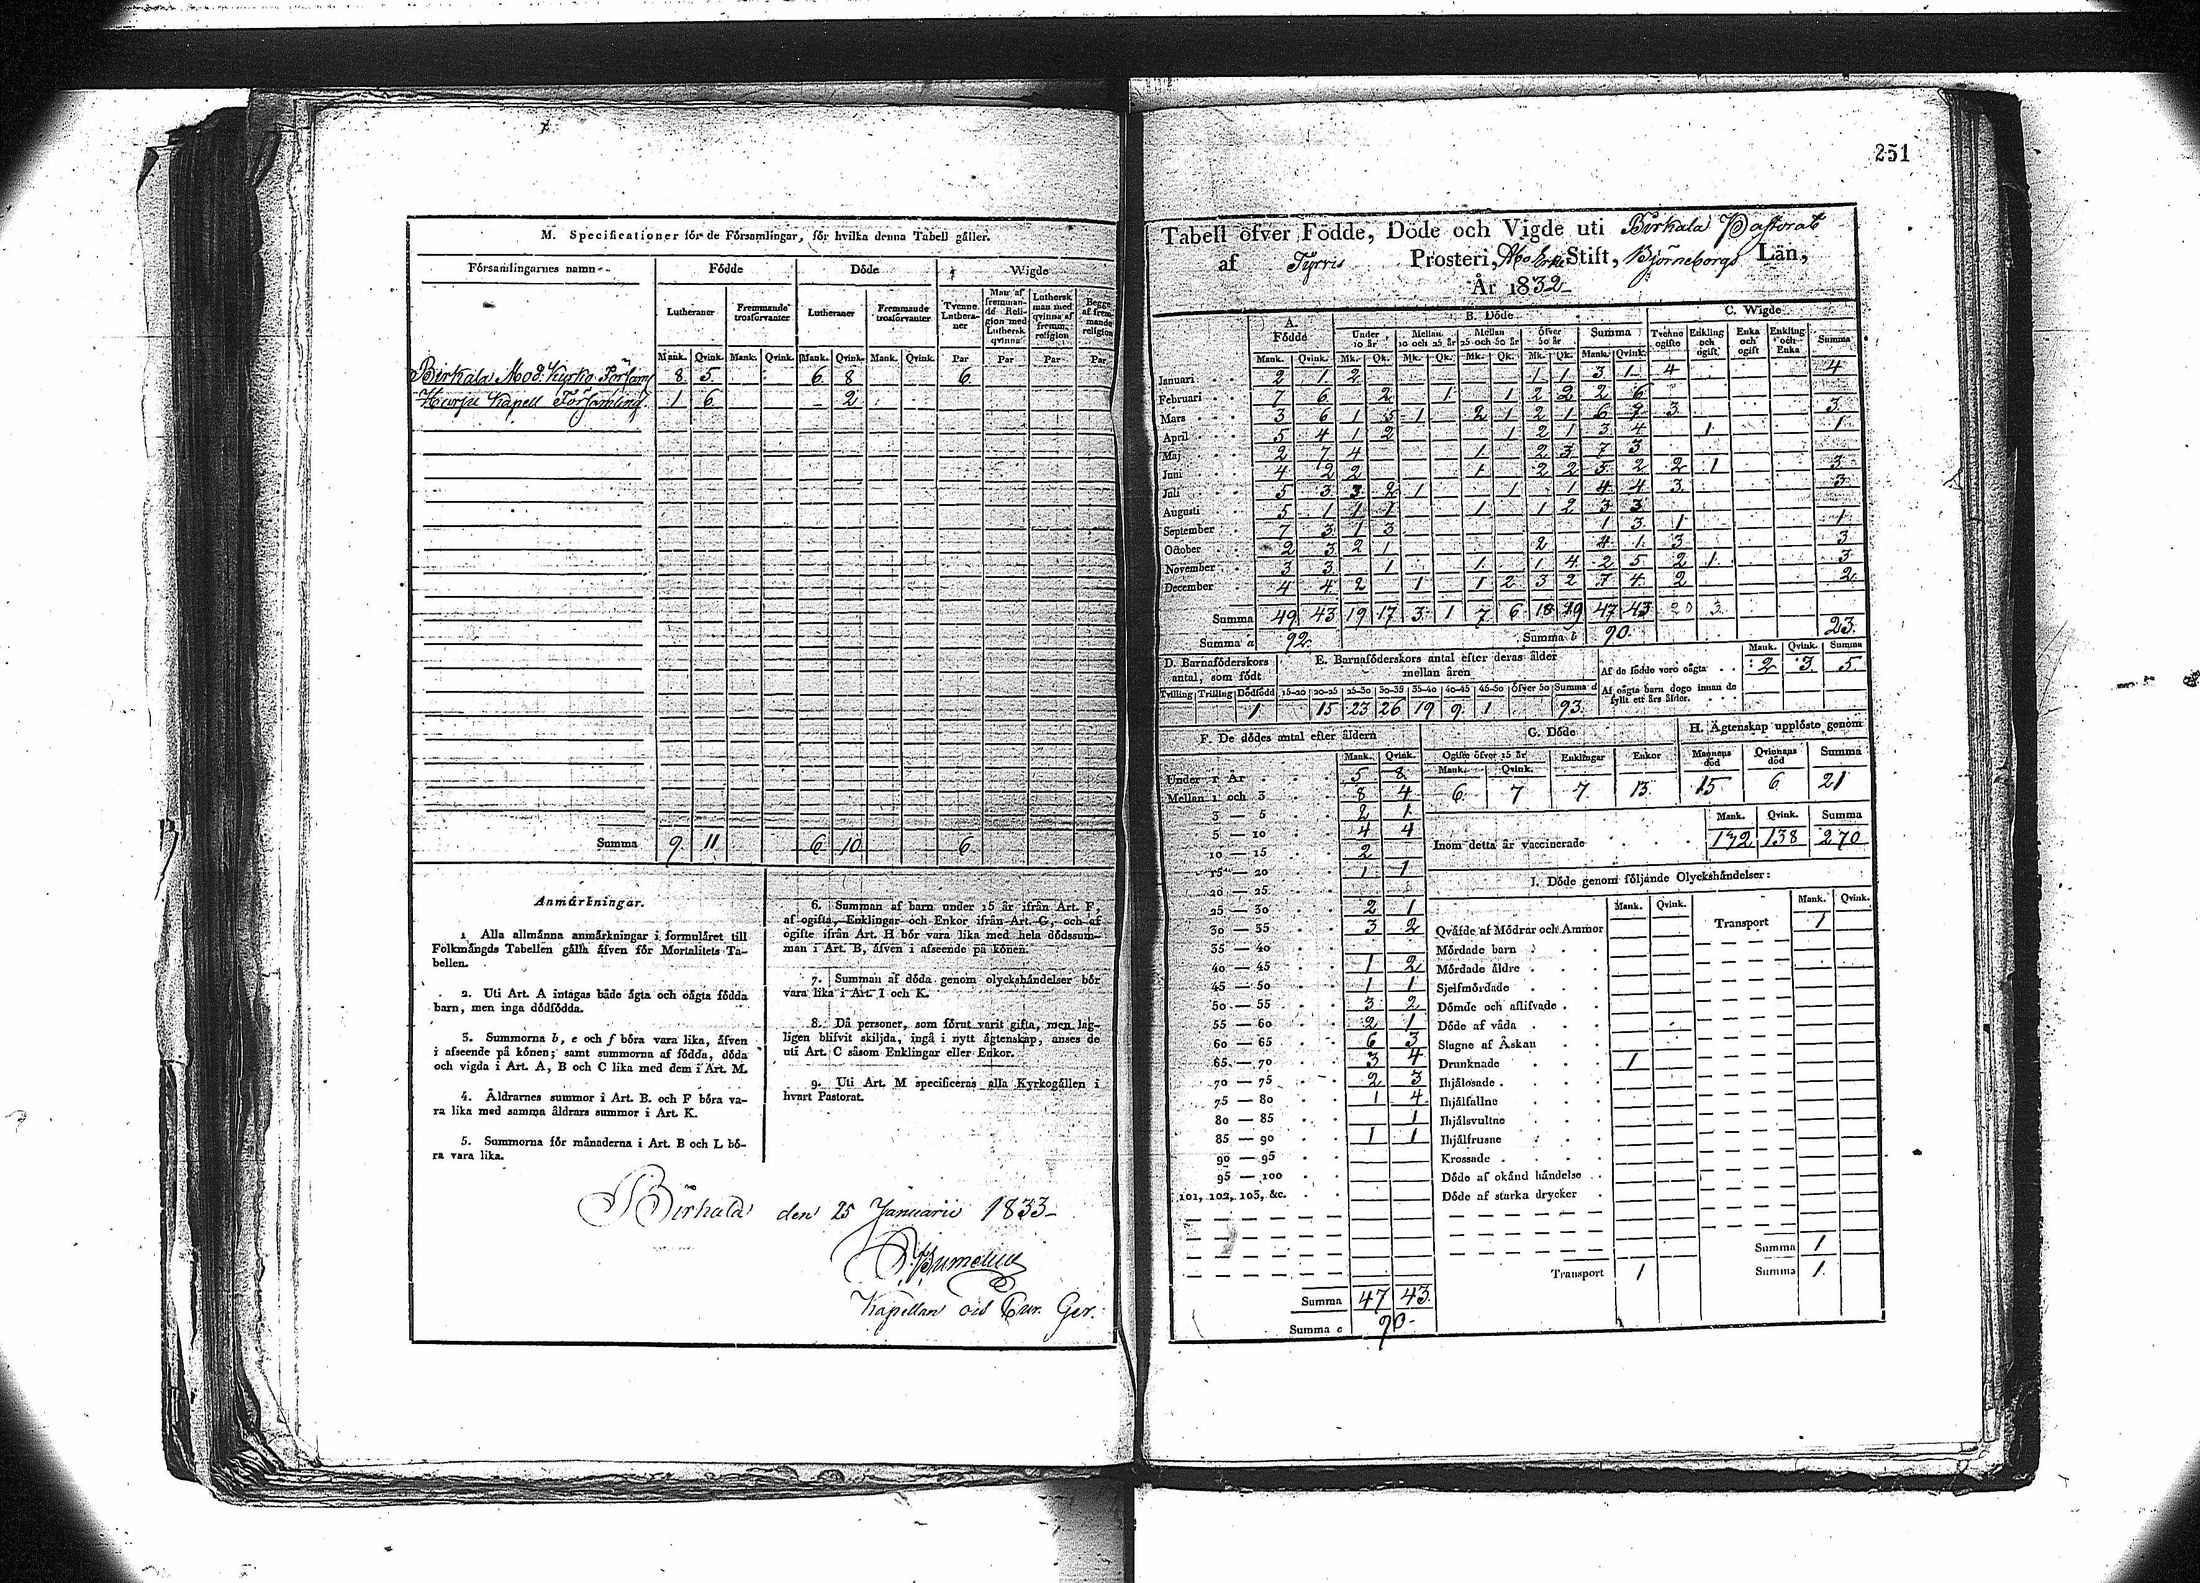 M. Specificationer för de Församlingar, för hvilka denna Tabell gäller.
Församlingarnes namn
Födde Döde Wigde
Lutheraner Fremmande trosförvanter Lutheraner Fremmande trosförvanter Tvenne Lutheraner Man af fremmande Religion med Luthersk qvinna Luthersk man med qvinna af fremm. religion Begge af fremmande religion
Mank. Qvink. Mank. Qvink. Mank. Qvink. Mank. Qvink. Par Par Par Par
Birkala Mod. Kyrko Församl 8 5 6 8 6
Harju Kapell Församling 1 6 - 2
Summa 9 11 6 10 6
Anmärkningar.
1 Alla allmänna anmärkningar i formuläret till
Folkmängds Tabellen gälla äfven för Mortalitets Ta-
bellen.
2. Uti Art. A intagas både ägta och oägta födda
barn, men inga dödfödda.
3. Summorna b, e och f böra vara lika, äfven
i afseende på könen; samt summorna af födda, döda
och vigda i Art. A, B och C lika med dem i Art. M.
4. Äldrarnes summor i Art. B. och F böra va-
ra lika med samma äldrars summor i Art. K.
5. Summorna för månaderna i Art. B och L bö-
ra vara lika.
6. Summan af barn under 15 år ifrån Art. F,
af ogifta, Enklingar och Enkor ifrån Art. G, och af
ogifte ifrån Art. H bör vara lika med hela dödssum-
man i Art. B, äfven i afseende på könen.
7. Summan af döda genom olyckshändelser bör
vara lika i Art. I och K.
8. Då personer, som förut varit gifta, men lag-
ligen blifvit skiljda, ingå i nytt ägtenskap, anses de
uti Art. C såsom Enklingar eller Enkor.
9. Uti Art. M specificeras alla Kyrkogällen i
hvart Pastorat.
Birkala den 25 Januarii 1833
Kapellan
251
Tabell öfver Födde, Döde och Vigde uti Birkala Pastorat
af Tyrvis Prosteri, Åbo Erke Stift, Björneborgs Län,
År 1832
A. Födde B. Döde C. Wigde
Under 10 år Mellan 10 och 25 år Mellan 25 och 50 år Öfver 50 år Summa Tvenne ogifte Enkling och ogift Enka och ogift Enkling och Enka Summa
Mank. Qvink. Mk. Qk. Mk. Qk. Mk. Qk. Mk. Qk. Mank. Qvink.
Januari 2 1 2 1 1 3 1 4 4
Februari 7 6 2 1 1 2 2 2 6
Mars 3 6 1 5 1 2 1 2 1 6 7 3 3
April 5 4 1 2 1 2 1 3 4 1 1
Maj 2 7 4 1 2 3 7 3
Juni 4 2 2 1 2 2 5 2 2 1 3
Juli 5 3 3 2 1 1 1 4 4 3 3
Augusti 5 1 1 1 1 1 2 3 3
September 7 3 1 3 1 3 1 1
October 2 3 2 1 2 4 1 3 3
November 3 3 1 1 1 4 2 5 2 1 3
December 4 4 2 1 1 2 3 2 7 4 2 2
Summa 49 43 19 17 3 1 7 6 18 19 47 43 20 3 23
Summa a 92 Summa b 90
D. Barnaföderskors antal, som födt
E. Barnaföderskors antal efter deras ålder mellan åren
Mank. Qvink. Summa
Af de födde voro oägta 2 3 5
Af oägta barn dogo innan de fyllt ett års ålder.
Tvilling Trilling Dödfödd 15-20 20-25 25-30 30-35 35-40 40-45 45-50 Öfver 50 Summa d
1 15 23 26 19 9 1 93
F. De dödes antal efter åldern
Mank. Qvink.
Under 1 År 5 8
Mellan 1 och 3 8 4
3 — 5 2 1
5 — 10 4 4
10 — 15 2
15 — 20 1 1
20 — 25
25 — 30 2 1
30 — 35 3 2
35 — 40
40 — 45 1 2
45 — 50 1 1
50 — 55 3 2
55 — 60 2 1
60 — 65 6 3
65 — 70 3 4
70 — 75 2 3
75 — 80 1 4
80 — 85 1
85 — 90 1 1
90 — 95
95 — 100
101, 102, 103, &c.
Summa 47 43
Summa e 90
G. Döde
Ogifte öfver 15 år Enklingar Enkor
Mank. Qvink.
6 7 7 13
H. Ägtenskap upplöste genom
Mannens död Qvinnans död Summa
15 6 21
Mank. Qvink. Summa
Inom detta år vaccinerade 132 138 270
I. Döde genom följande Olyckshändelser:
Mank. Qvink. Mank. Qvink.
Transport 1
Qväfde af Mödrar och Ammor
Mördade barn
Mördade äldre
Sjelfmördade
Dömde och aflifvade
Döde af våda
Slagne af Åskan
Drunknade 1
Ihjälosade
Ihjälfallne
Ihjälsvultne
Ihjälfrusne
Krossade
Döde af okänd händelse
Döde af starka drycker
Summa 1
Transport 1 Summa 1